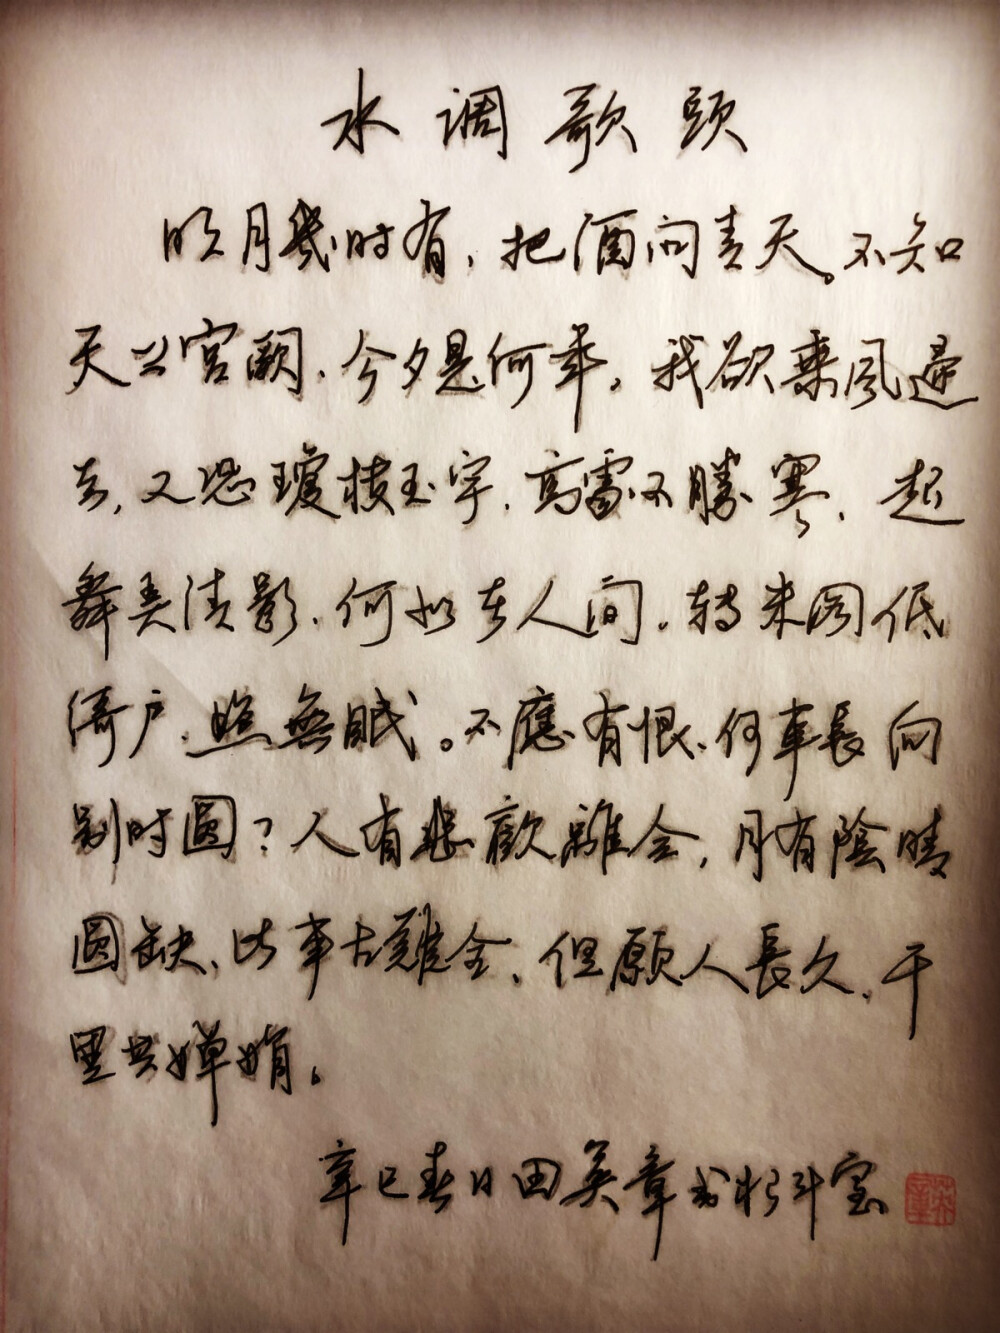 水调歌頭
明月幾时有，把酒问青天。不知
天上宫阙，今夕是何年。我欲乘風歸
去，又恐瓊楼玉宇，高處不勝寒，起
舞弄清影，何如在人间。转朱阁低
绮户，照無眠。不應有恨，何事長向
别时圆？人有悲歡離合，月有陰晴
圆缺，此事古難全，但愿人長久，千
里共婵娟。
辛巳春日田英章书於斗室